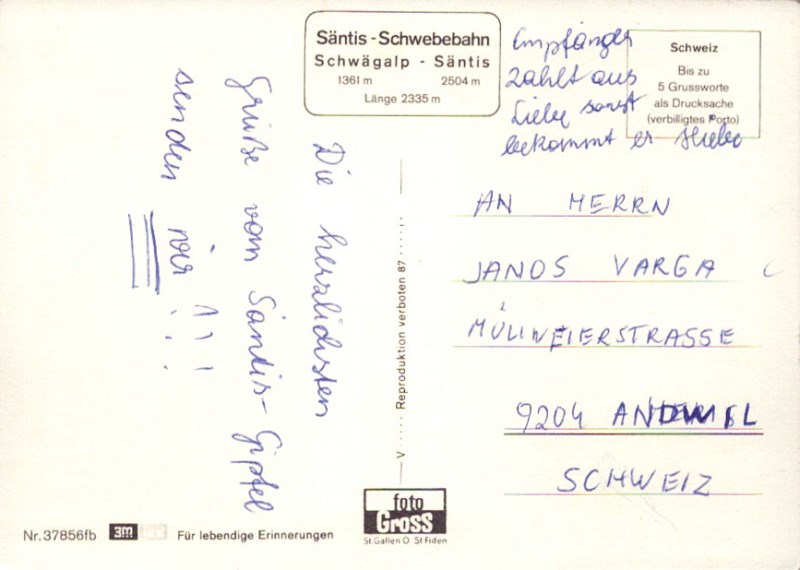 Säntis - Schwebebahn
Schwägalp - Säntis
1361 m 2504 m
Länge 2335 m
Empfänger
zahlt aus
Liebe sonst
bekommt er Hiebe
Schweiz
Bis zu
5 Grussworte
als Drucksache
(verbilligtes Porto)
Die herzlichsten
Grüße vom Säntis-Gipfel
senden wir !!!
AN HERRN
JANOS VARGA
MÜLIWEIERSTRASSE
9204 ANDWIL
SCHWEIZ
V ..... Reproduktion verboten 87 .....
foto
Gross
St.Gallen O St.Fiden
Nr.37856fb 3m Für lebendige Erinnerungen